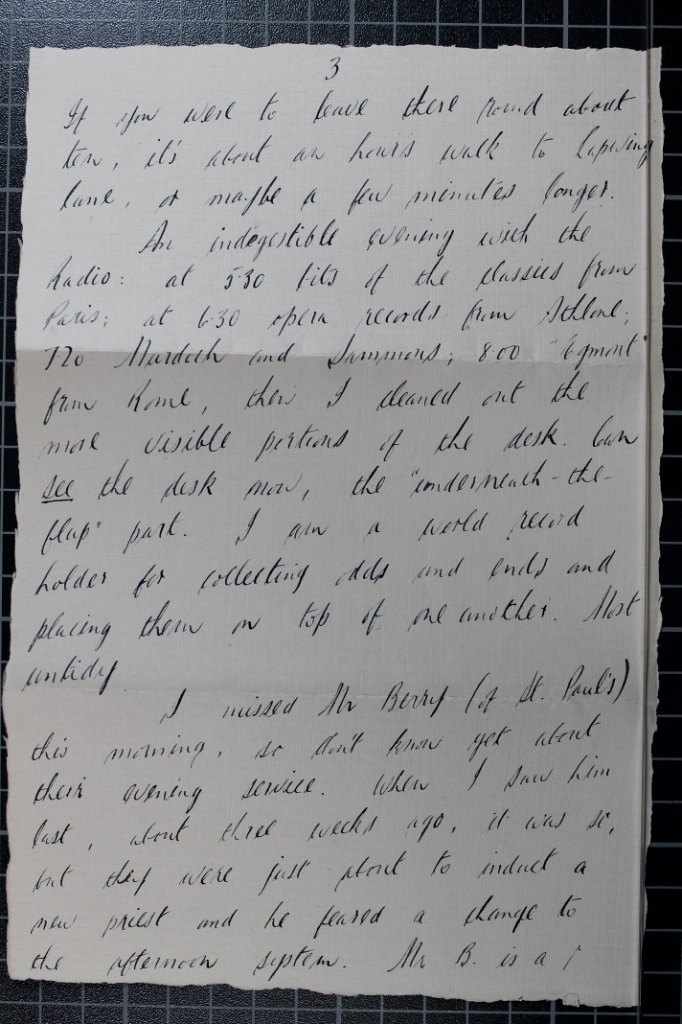 3
If you were to leave there round about
ten, it's about an hour's walk to Lapwing
Lane, or maybe a few minutes longer.
An indegestible evening with the
Radio: at 5-30 bits of the classics from
Paris; at 6-30 opera records from Athlone;
720 Murdoch and Sammons; 8.00 "Egmont"
from Rome, then I cleaned out the
more visible portions of the desk. Can
see the desk now, the "underneath-the-
flap" part. I am a world record
holder for collecting odds and ends and
placing them on top of one another. Most
untidy
I missed Mr Berry (of St. Paul's)
this morning, so don't know yet about
their evening service. When I saw him
last, about three weeks ago, it was so,
but they were just about to induct a
new priest and he feared a change to
the afternoon system. Mr B. is a